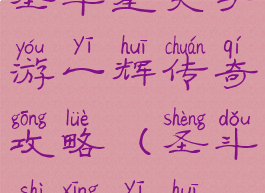 yóu yī huī chuán qí
游一辉传奇
gōng lüè shèng dǒu
攻略(圣斗
shì xīng yī huī